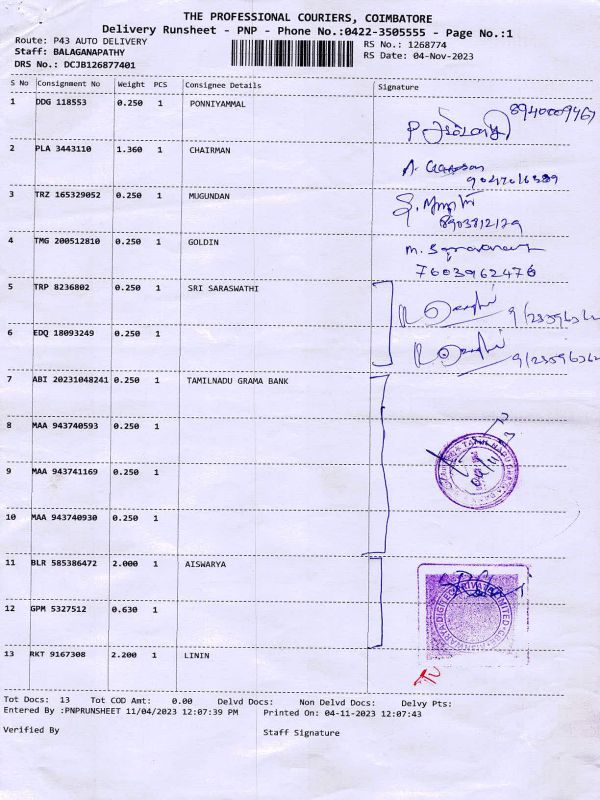 THE PROFESSIONAL COURIERS, COIMBATORE
Delivery Runsheet - PNP - Phone No.:0422-3505555 - Page No.:1
Route: P43 AUTO DELIVERY
RS No.: 1268774
Staff: BALAGANAPATHY
RS Date: 04-Nov-2023
DRS No.: DCJB126877401
S No Consignment No Weight PCS Consignee Details Signature
1 DDG 118553 0.250 1 PONNIYAMMAL
8940009467
2 PLA 3443110 1.360 1 CHAIRMAN
3 TRZ 165329052 0.250 1 MUGUNDAN
8903812129
4 TMG 200512810 0.250 1 GOLDIN
7603962476
5 TRP 8236802 0.250 1 SRI SARASWATHI
6 EDQ 18093249 0.250 1
7 ABI 20231048241 0.250 1 TAMILNADU GRAMA BANK
8 MAA 943740593 0.250 1
9 MAA 943741169 0.250 1
10 MAA 943740930 0.250 1
11 BLR 585386472 2.000 1 AISWARYA
12 GPM 5327512 0.630 1
13 RKT 9167308 2.200 1 LININ
Tot Docs: 13 Tot COD Amt: 0.00 Delvd Docs: Non Delvd Docs: Delvy Pts:
Entered By :PNPRUNSHEET 11/04/2023 12:07:39 PM Printed On: 04-11-2023 12:07:43
Verified By
Staff Signature